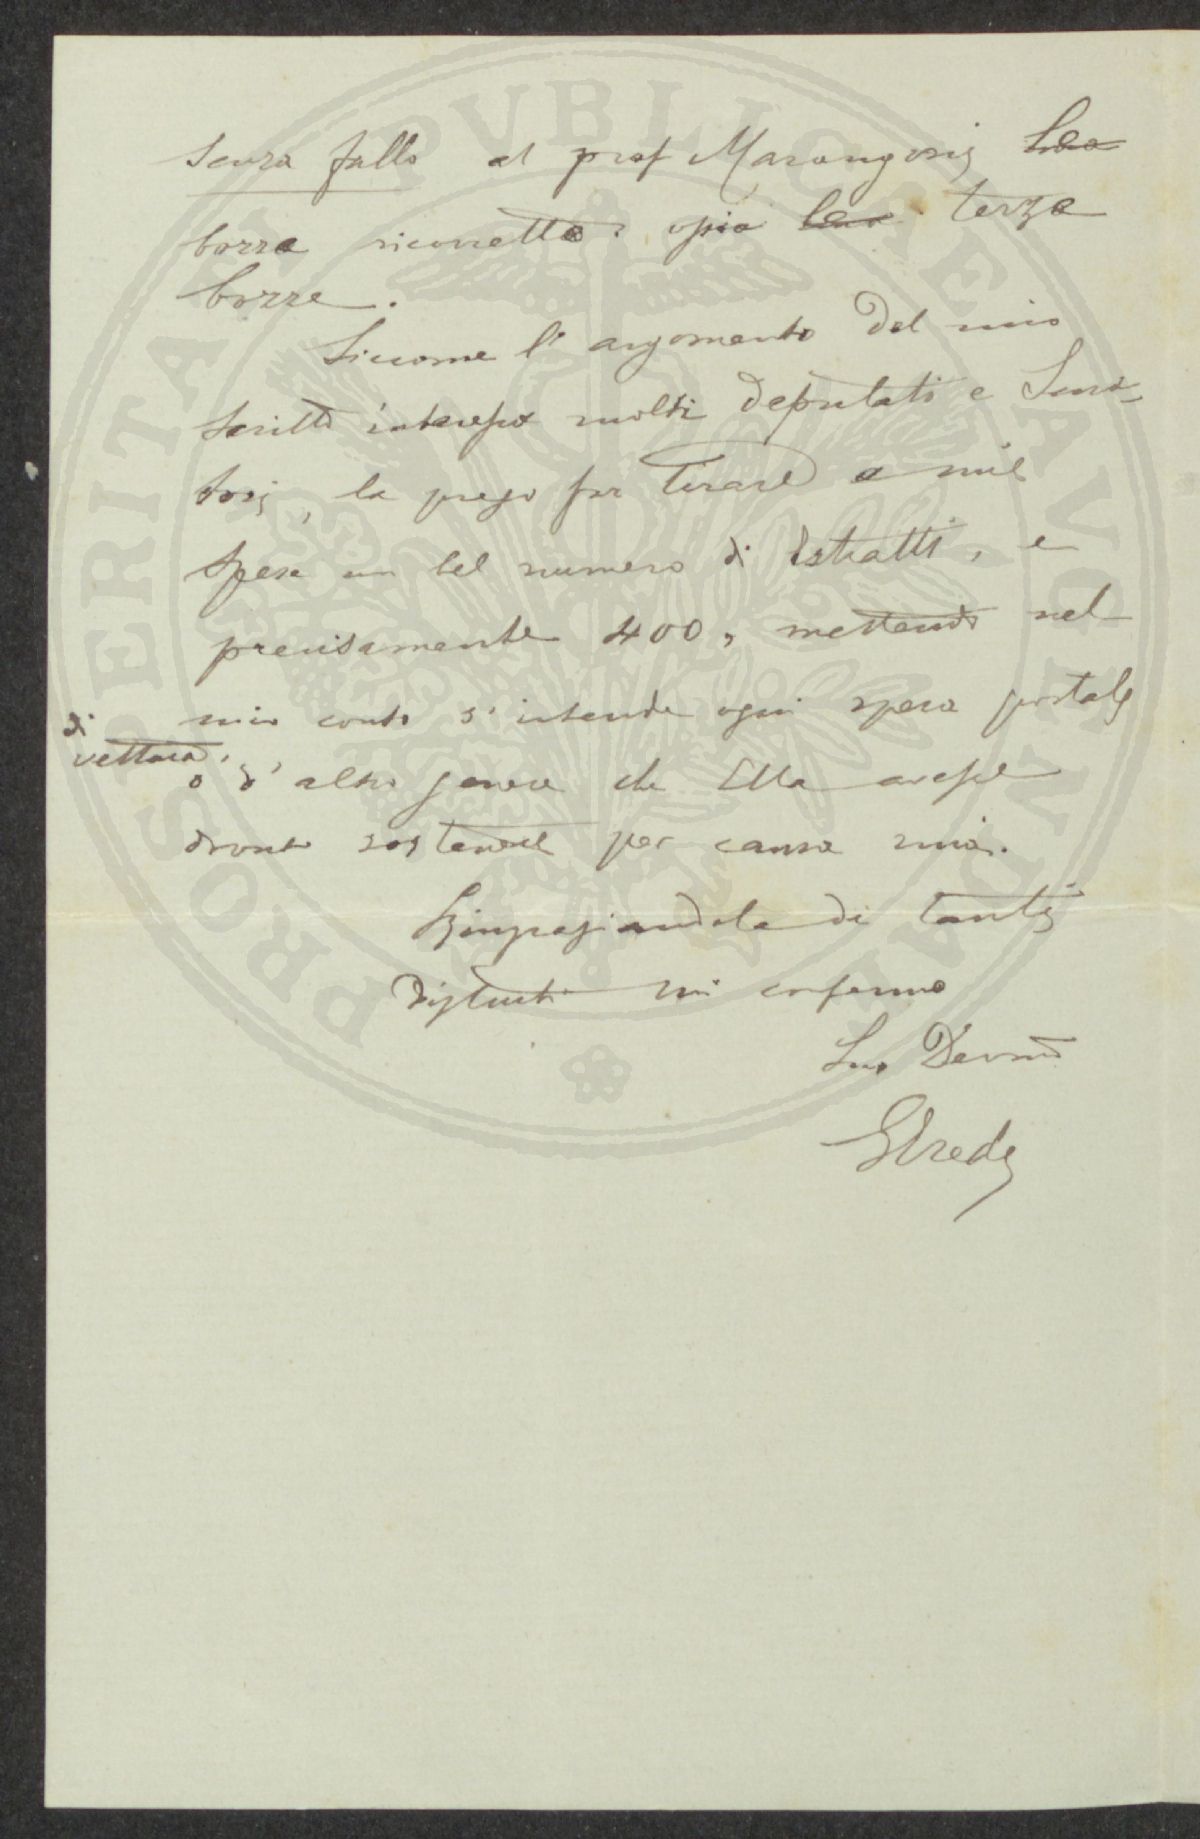 senza fallo al prof Marangoni
bozza ricorretta: ossia terza
bozze.
Siccome l'argomento del mio
scritto interessa molti deputati e Sena-
tori, la prego far tirare a mie
spese un bel numero di Estratti, e
precisamente 400, mettendo nel
mio conto s'intende ogni spesa postale
di
vettura,
o d'altro genere che Ella avesse
dovuto sostenere per causa mia.
Ringraziandola di tanti
disturbi mi confermo
Suo Devmo
PROSPERITATI PVBLICAE AVGENDAE